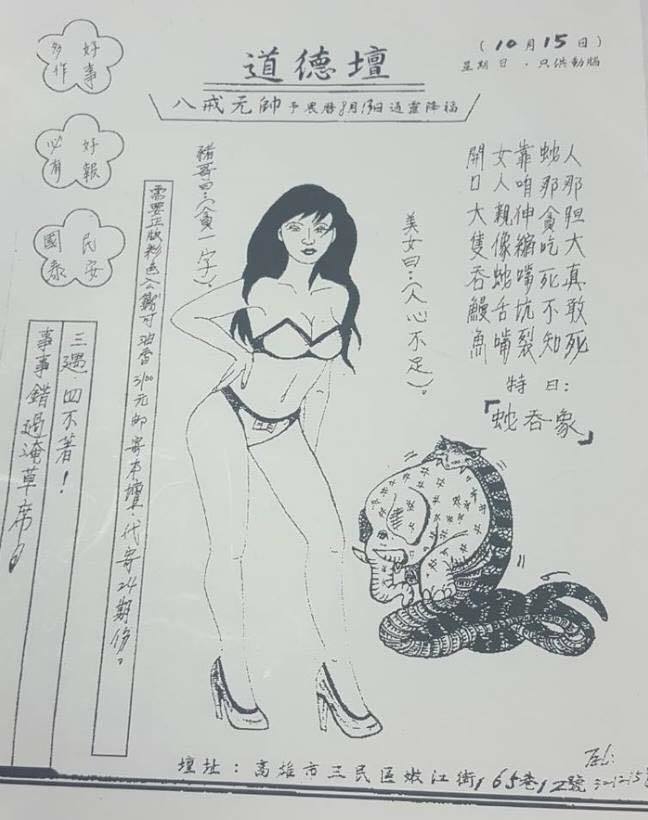 好事
多作
道德壇
(10月15日)
星期日．只供動腦
八戒元帥予農曆8月13日通靈降福
好報
必有
民安
國泰
人那胆大真敢死
蛇那貪吃死不知
靠咱伸縮嘴坑裂
女人親像蛇舌嘴
開口大隻吞鰻魚
特曰：
「蛇吞象」
美女曰：（人心不足）。
豬哥曰：（貪一字）。
需要正版彩色公籤可 3100元郵寄本壇代寄24期份。
三遇．四不著！
事事錯過淹草席！
壇址：高雄市三民區嫩江街165巷12號